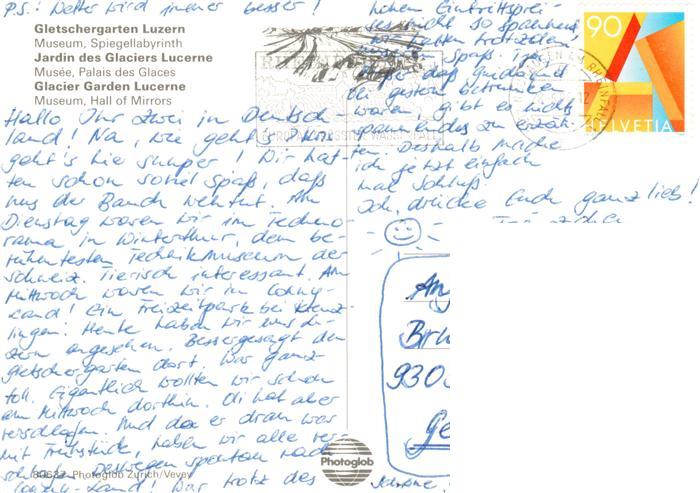 P.S.: Wetter wird immer besser!
Gletschergarten Luzern
Museum, Spiegellabyrinth
Jardin des Glaciers Lucerne
Musée, Palais des Glaces
Glacier Garden Lucerne
Museum, Hall of Mirrors
Hallo Ihr zwei in Deutsch-
land! Na, wie geht's? Mir
geht's hie suuper! Wir hat-
ten schon soviel Spaß, daß
uns der Bauch wehtut. Am
Dienstag waren wir im Techno-
rama in Winterthur, dem be-
rühmtesten Technikmuseum der
Schweiz. Tierisch interessant. Am
Mittwoch waren wir im Conny-
Land! Ein Freizeitpark bei Kreuz-
lingen. Heute haben wir uns Lu-
zern angesehen. Bessergesagt den
Gletschergarten dort. War ganz
toll. Eigentlich wollten wir schon
am Mittwoch dorthin. Uli hat aber
verschlafen. Und da er dran war
mit Frühstück, haben wir alle ver-
schlafen. Deswegen spontan nach
Conny-Land! War trotz des
hohen Eintrittsprei-
ses
so spannend
wir hatten trotzdem
unseren Spaß.
daß Guido und
Uli gestern betrunken
waren, gibt es nichts
spannendes zu erzäh-
len. Deshalb mache
ich jetzt einfach
mal Schluß.
Ich drücke Euch ganz lieb!
90
HELVETIA
An
930
80637 Photoglob Zürich/Vevey
Photoglob